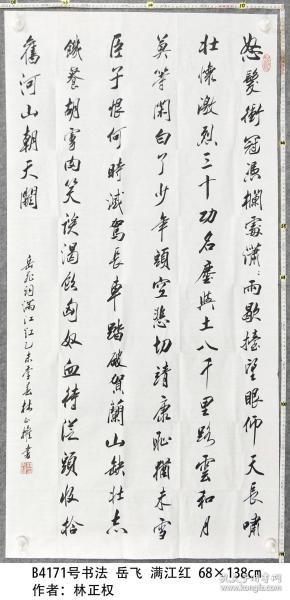 怒髮衝冠憑欄處瀟〻雨歇擡望眼仰天長嘯
壯懷激烈三十功名塵與土八千里路雲和月
莫等閑白了少年頭空悲切靖康恥猶未雪
臣子恨何時滅駕長車踏破賀蘭山缺壯志
饑餐胡虜肉笑談渴飲匈奴血待從頭收拾
舊河山朝天闕
岳飛詞滿江紅乙未季春林正權書
B4171号书法 岳飞 满江红 68×138cm
作者：林正权
孔夫子旧书网